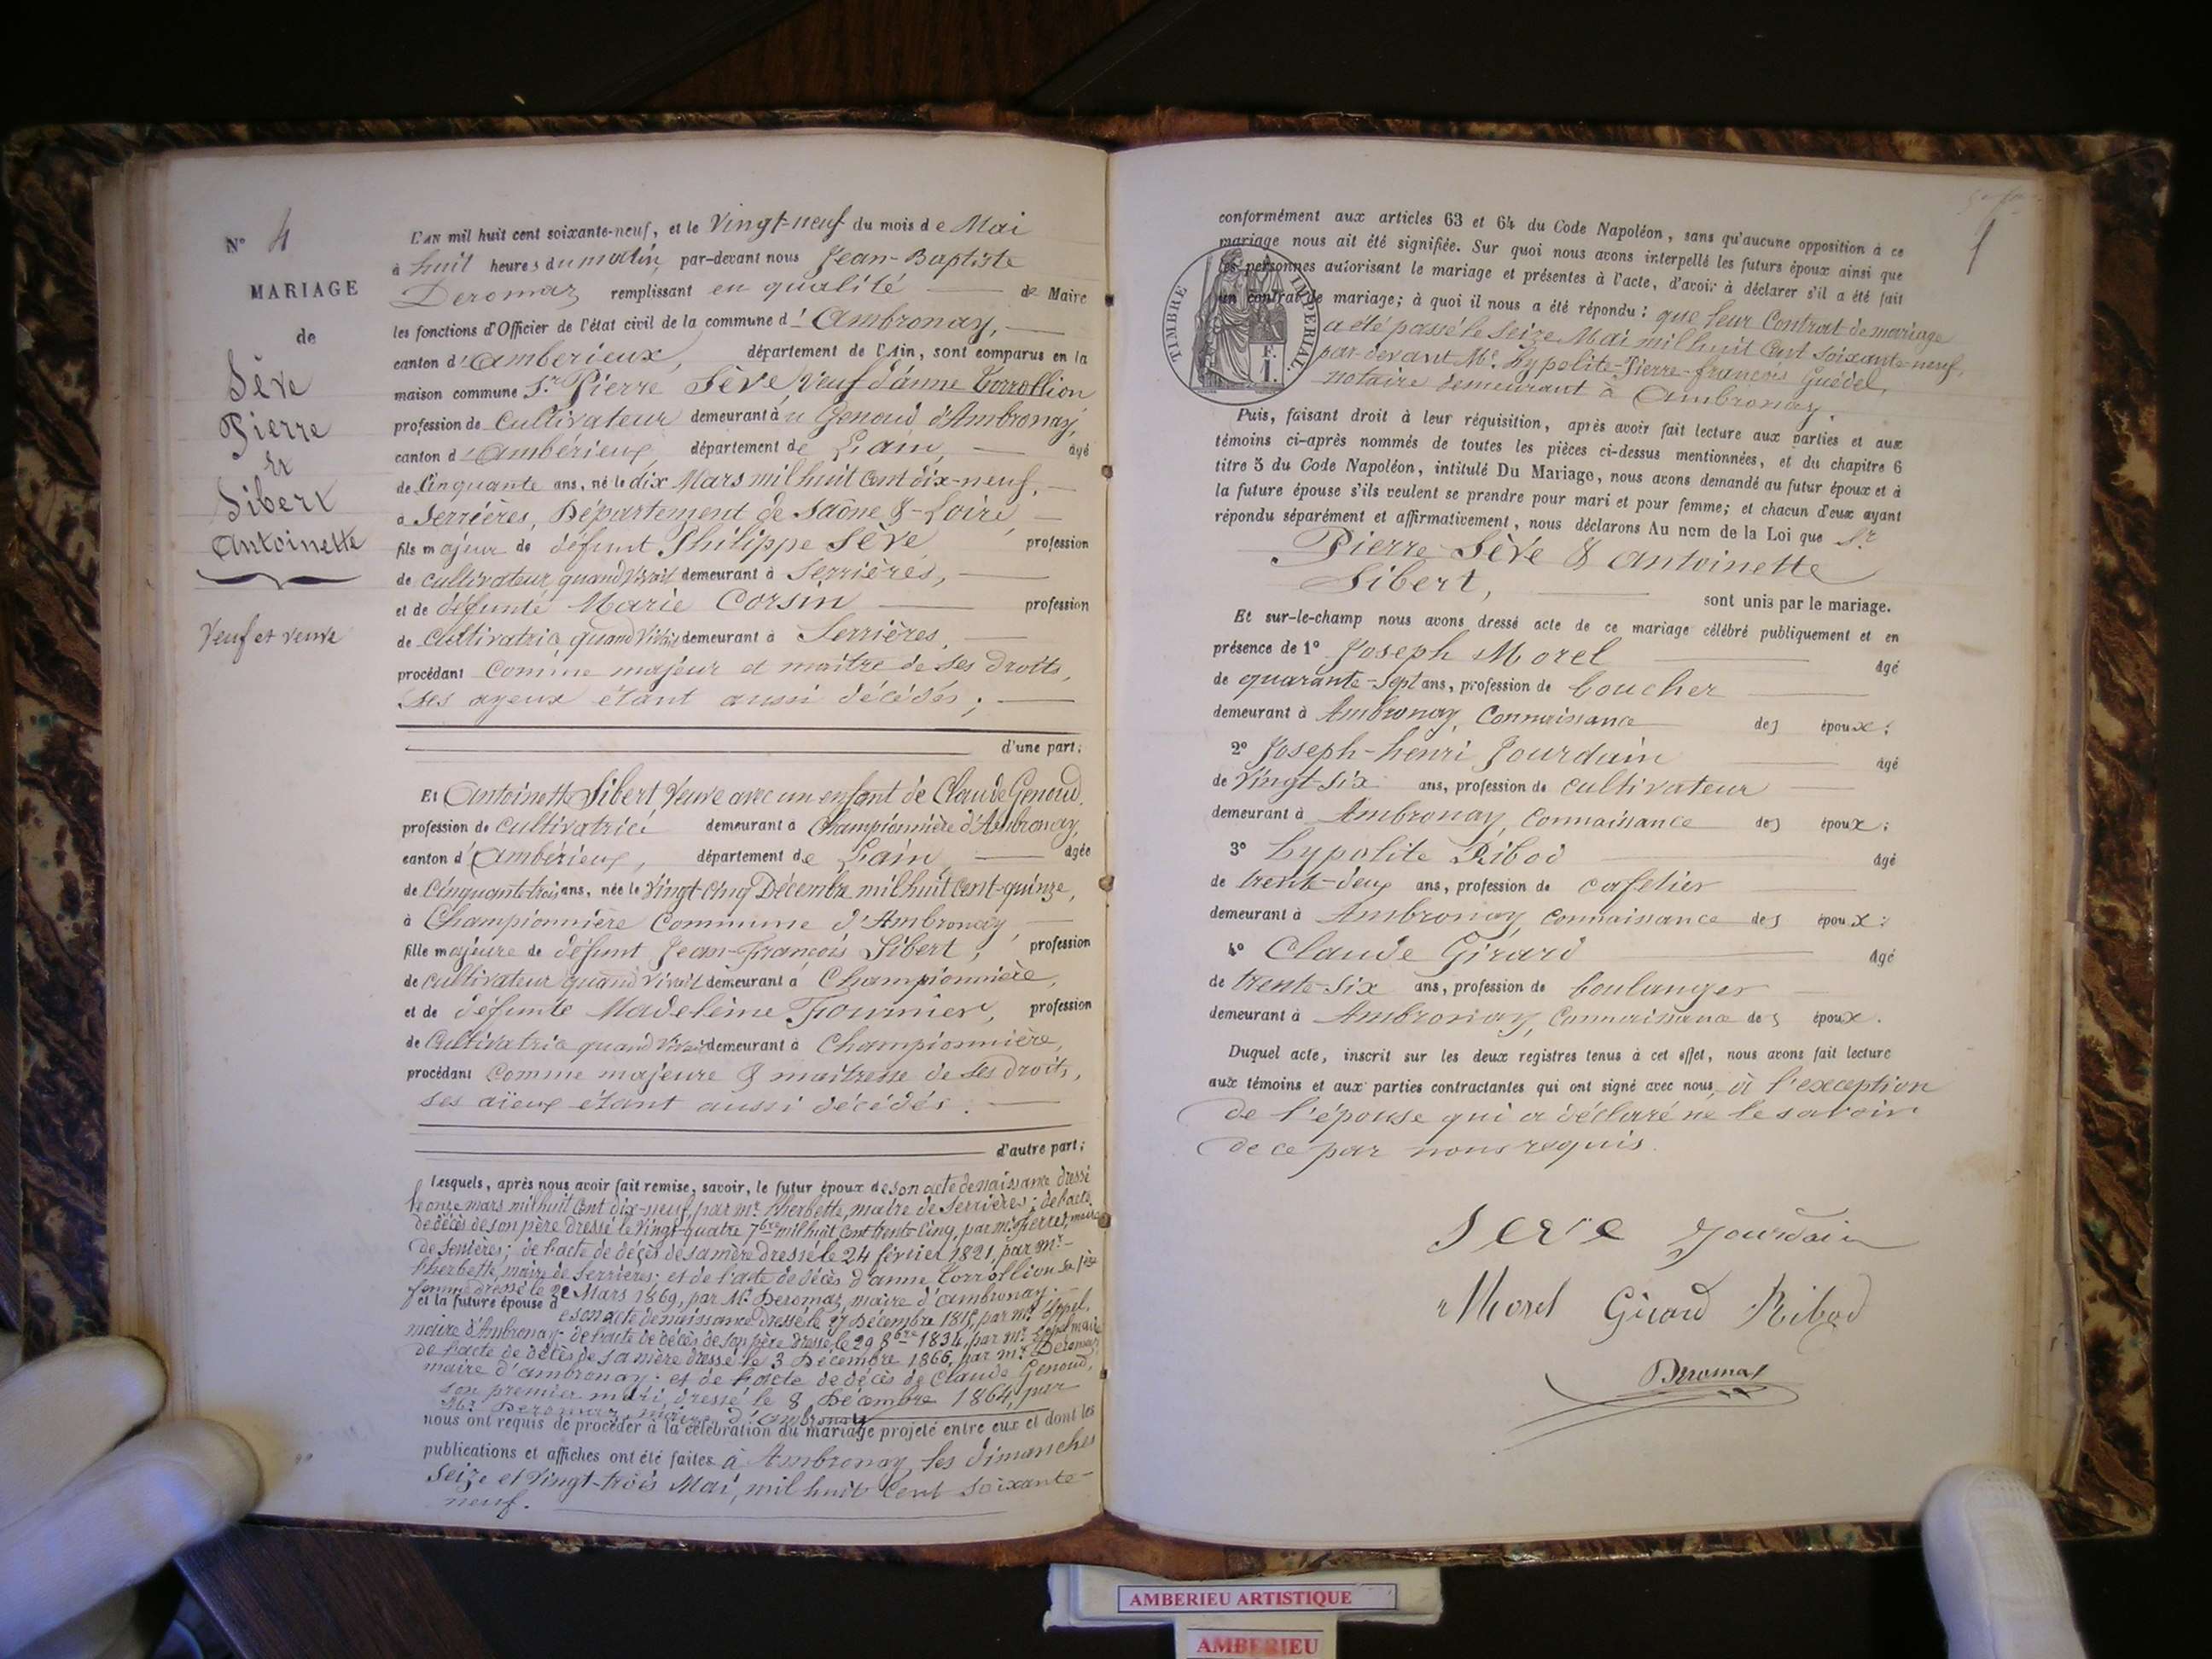 N° 4
MARIAGE
de
Sève
Pierre
et
Sibert
Antoinette
Veuf et veuve
L'AN mil huit cent soixante-neuf, et le Vingt-neuf du mois de Mai
à huit heures du matin, par-devant nous Jean-Baptiste
Deromaz remplissant en qualité de Maire
les fonctions d'Officier de l'état civil de la commune d'Ambronay,
canton d'Ambérieux, département de l'Ain, sont comparus en la
maison commune Sr. Pierre Sève, Veuf d'anne Corrollion
profession de cultivateur demeurant à Genoud d'Ambronay,
canton d'Ambérieux, département de L'ain, âgé
de Cinquante ans, né le dix Mars mil huit Cent dix-neuf,
à Serrières, Département de Saône & Loire,
fils majeur de défunt Philippe Sève, profession
de cultivateur quand vivait demeurant à Serrières,
et de défunte Marie Corsin profession
de cultivatrice quand vivait demeurant à Serrières,
procédant Comme majeur et maître de ses droits,
Ses ayeux étant aussi décédés;
d'une part;
Et Antoinette Sibert Veuve avec un enfant de Claude Genoud,
profession de cultivatrice demeurant à Championnière d'Ambronay,
canton d'Ambérieux, département de L'ain, âgée
de Cinquante trois ans, née le Vingt-cinq Décembre mil huit Cent-quinze,
à Championnière Commune d'Ambronay,
fille majeure de défunt Jean-François Sibert, profession
de cultivateur quand vivait demeurant à Championnière,
et de défunte Madeleine Fournier, profession
de Cultivatrice quand vivait demeurant à Championnière,
procédant Comme majeure & maitresse de ses droits,
ses aïeux étant aussi décédés.
d'autre part;
Lesquels, après nous avoir fait remise, savoir, le futur époux de son acte de naissance dressé
le onze mars mil huit Cent dix-neuf, par mr. Lherbette, maire de Serrières; de l'acte
de décès de son père dressé le Vingt-quatre 7bre mil huit Cent trente-cinq, par mr. Ferret, maire
de Serrières; de l'acte de décès de sa mère dressé le 24 février 1821, par Mr.
Lherbette, maire de Serrières; et de l'acte de décès d'anne Corrollion sa 1ère
femme dressé le 2 Mars 1869, par Mr. Deromaz, maire d'Ambronay.
et la future épouse de son acte de naissance dressé le 27 Décembre 1815, par mr. Eppel,
maire d'Ambronay; de l'acte de décès de son père dressé le 29 8bre 1834, par mr. Eppel maire
de l'acte de décès de sa mère dressé le 3 Décembre 1866, par mr. Deromaz,
maire d'ambronay; et de l'acte de décès de Claude Genoud,
son premier mari, dressé le 8 Décembre 1864, par
Mr. Deromaz, maire d'Ambronay
nous ont requis de procéder à la célébration du mariage projeté entre eux et dont les
publications et affiches ont été faites à Ambronay, les Dimanches
Seize et Vingt-trois Mai, mil huit Cent Soixante-
neuf.
conformément aux articles 63 et 64 du Code Napoléon, sans qu'aucune opposition à ce
mariage nous ait été signifiée. Sur quoi nous avons interpellé les futurs époux ainsi que
les personnes autorisant le mariage et présentes à l'acte, d'avoir à déclarer s'il a été fait
un contrat de mariage; à quoi il nous a été répondu: que leur Contrat de mariage
a été passé le Seize Mai mil huit Cent soixante-neuf,
par-devant Me. hypolite-Pierre-francois Guédel,
notaire demeurant à Ambronay.
TIMBRE IMPERIAL.
F.
1.
Puis, faisant droit à leur réquisition, après avoir fait lecture aux parties et aux
témoins ci-après nommés de toutes les pièces ci-dessus mentionnées, et du chapitre 6
titre 5 du Code Napoléon, intitulé Du Mariage, nous avons demandé au futur époux et à
la future épouse s'ils veulent se prendre pour mari et pour femme; et chacun d'eux ayant
répondu séparément et affirmativement, nous déclarons Au nom de la Loi que Sr.
Pierre Sève & Antoinette
Sibert,
sont unis par le mariage.
Et sur-le-champ nous avons dressé acte de ce mariage célébré publiquement et en
présence de 1° Joseph Morel âgé
de quarante-sept ans, profession de boucher
demeurant à Ambronay, Connaissance des époux;
2° Joseph-henri Jourdain âgé
de Vingt-six ans, profession de cultivateur
demeurant à Ambronay, Connaissance des époux;
3° hypolite Ribod âgé
de trente-deux ans, profession de cafetier
demeurant à Ambronay, Connaissance des époux;
4° Claude Girard âgé
de trente-six ans, profession de boulanger
demeurant à Ambronay, Connaissance des époux.
Duquel acte, inscrit sur les deux registres tenus à cet effet, nous avons fait lecture
aux témoins et aux parties contractantes qui ont signé avec nous, à l'exception
de l'épouse qui a déclaré ne le savoir
de ce par nous requis.
Seve Jourdain
Morel Girard Ribod
Deromaz
AMBERIEU ARTISTIQUE
AMBERIEU